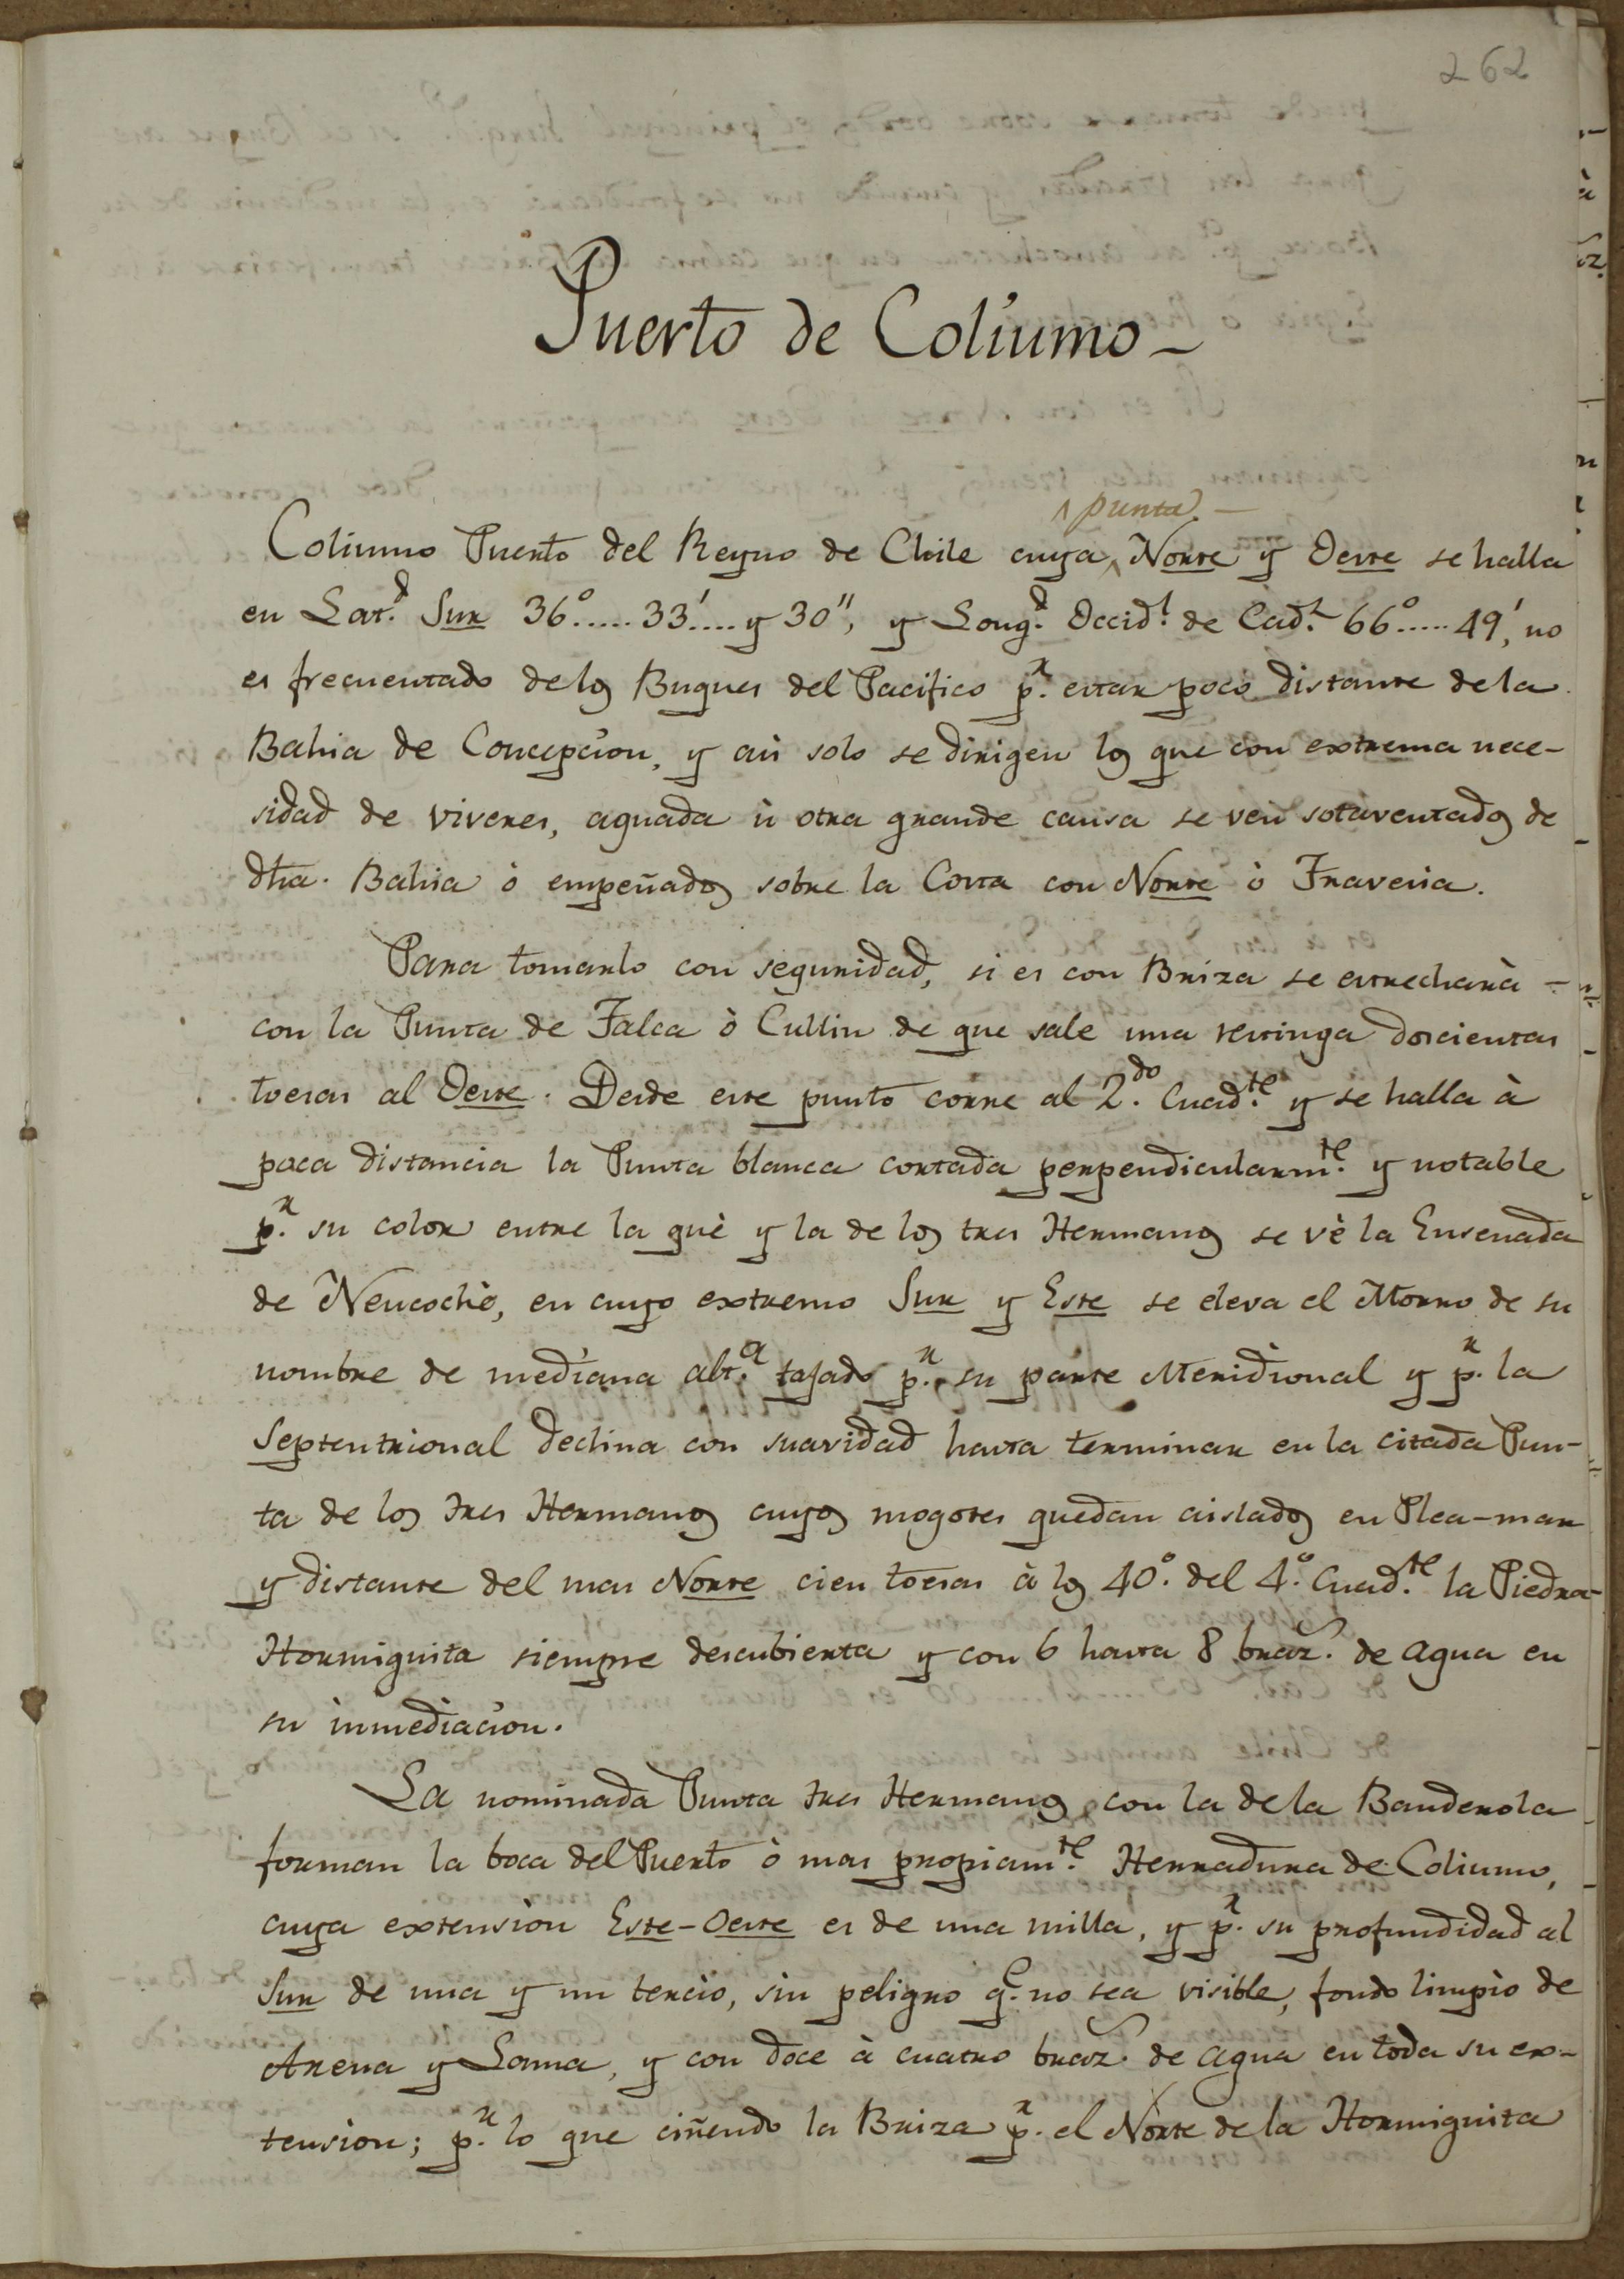 262
Puerto de Coliumo –
^ punta –
Coliumo Puerto del Reyno de Chile cuya ^ Norte y Oeste se halla
en Lat.d Sur 36°.....33'....y 30", y Long.d Occid.l de Cad.z 66°.....49', no
es frecuentado de los Buques del Pacifico p.r estar poco distante de la
Bahia de Concepcion, y asi solo se dirigen los que con extrema nece-
sidad de viveres, aguada ù otra grande causa se ven sotaventados de
dha. Bahia ò empeñados sobre la Costa con Norte ò Travesia.
Para tomarlo con seguridad, si es con Briza se estrecharà –
con la Punta de Talca ò Cullin de que sale una restinga doscientas
toesas al Oeste. Desde este punto corre al 2.do Cuad.te y se halla à
poca distancia la Punta blanca cortada perpendicularm.te y notable
p.r su color entre la què y la de los tres Hermanos se vè la Ensenada
de Neucochè, en cuyo extremo Sur y Este se eleva el Morro de su
nombre de mediana alt.a tajado p.r su parte Meridional y p.r la
Septentrional declina con suavidad hasta terminar en la citada Pun-
ta de los tres Hermanos cuyos mogotes quedan aislados en Plea-mar
y distante del mas Norte cien toesas à los 40°. del 4.° Cuad.te la Piedra-
Hormiguita siempre descubierta y con 6 hasta 8 braz.s de agua en
su inmediacion.
La nominada Punta tres Hermanos con la de la Banderola
forman la boca del Puerto ò mas propiam.te Herradura de Coliumo,
cuya extension Este-Oeste es de una milla, y p.r su profundidad al
Sur de una y un tercio, sin peligro q.e no sea visible, fondo limpio de
Arena y Lama, y con doce à cuatro braz.s de agua en toda su ex-
tension; p.r lo que ciñendo la Briza p.r el Norte de la Hormiguita